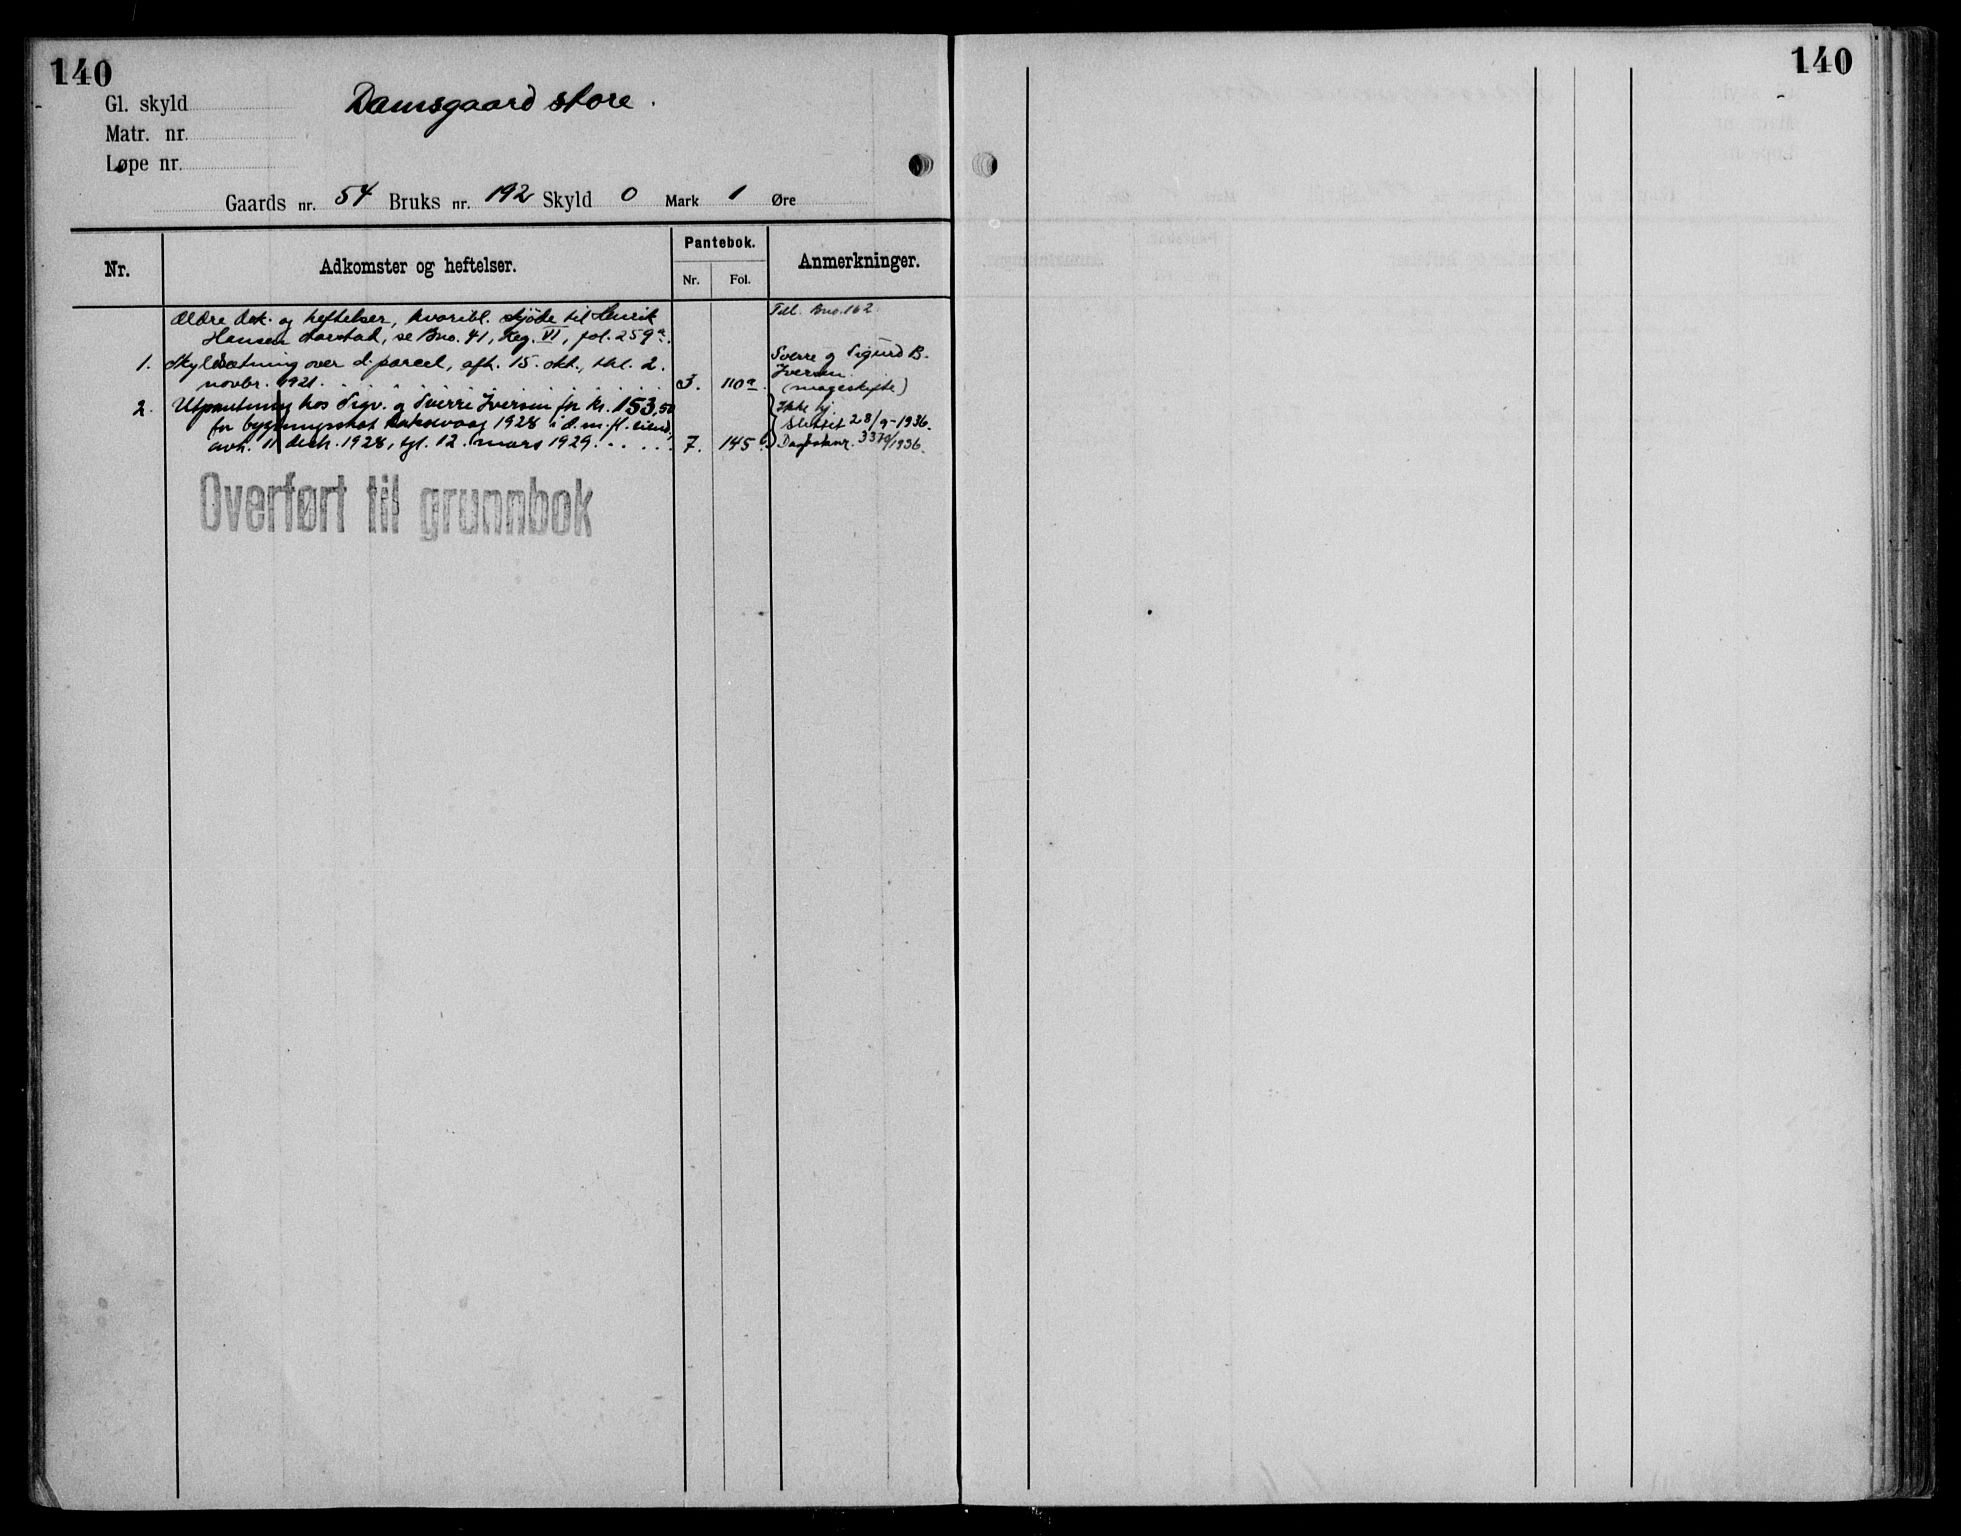 140
Gl. skyld
Damsgaard store.
Matr. nr.
Løpe nr.
Gaards nr. 54 Bruks nr. 192 Skyld 0 Mark 1 Øre
Nr. Adkomster og heftelser. Pantebok. Nr. Fol. Anmerkninger.
Ældre dok. og heftelser, hvoribl. skjöde til Henrik
Hansen, se Bno. 41, Reg. VI, fol. 259a.
Till. Bno. 162
1. Skyldsætning over d. parcel, afh. 15. okt., thl. 2.
novbr. 1921. 3. 110a.
Sverre og Sigurd B.
Iversen.
(mageskifte)
2. Utpantning hos Sigv. og Sverre Iversen for kr. 153,50
for bygningsskat Laksevaag 1928 i d. m. fl. eiend.
avh. 11 desb. 1928, tgl. 12. mars 1929. 7. 145b.
Ikke hj.
Slettet 28/9-1936.
Dagboknr. 3370/1936.
Overført til grunnbok
140